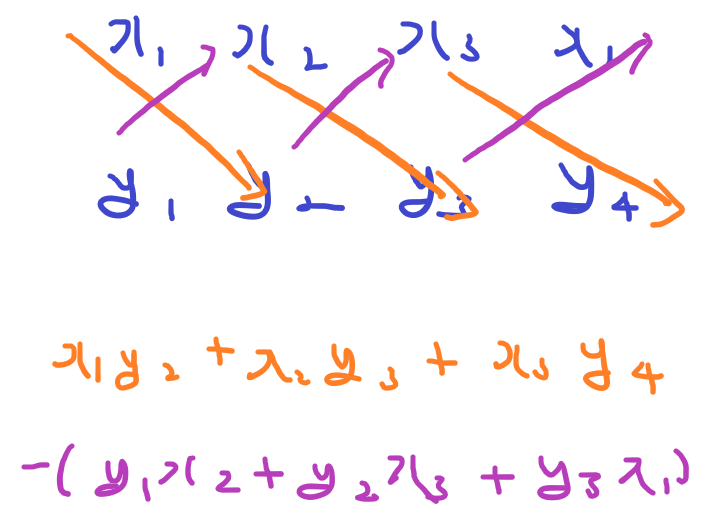 x₁ x₂ x₃ x₁
y₁ y₂ y₃ y₄
x₁y₂ + x₂y₃ + x₃y₄
-(y₁x₂ + y₂x₃ + y₃x₁)